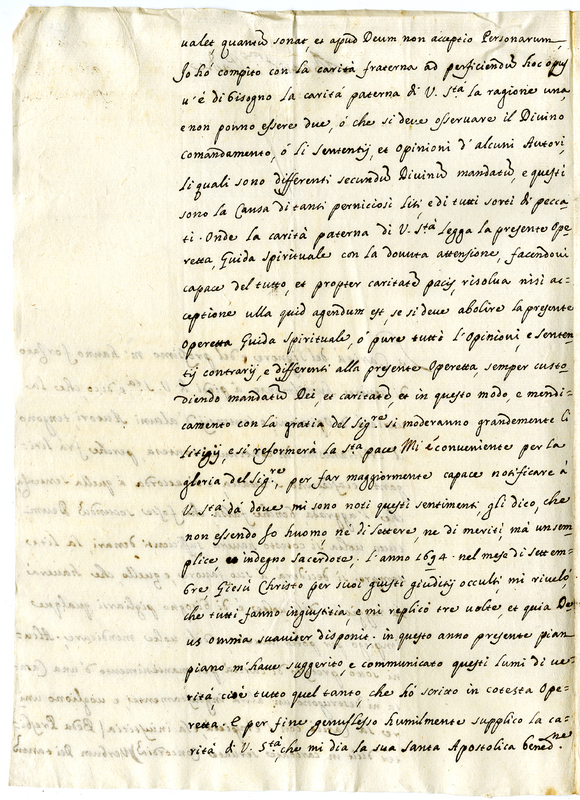 valet, quantū sonat, et apud Deum non acceptio Personarum,
Io hò compito con la carità fraterna ad perficiendū hoc opus
v'è di bisogno la carità paterna di V. Stà la ragione una,
e non ponno essere due, ò che si deve osservare il Divino
Comandamento, ò li Sententij, et opinioni d'alcuni Autori,
li quali sono differenti secundū Divinū mandatū, e questi
sono la Causa di tanti perniciosi liti, e di tutti sorti di pecca=
ti. Onde la carità paterna di V. Stà legga la presente Ope=
retta, Guida Spirituale con la dovuta attensione, facendosi
capace del tutto, et propter caritatē pacis, risolva nisi ac=
ceptione ulla quid agendum est, se si deve abolire la presente
Operetta Guida Spirituale, ò pure tutto l'Opinioni, e Senten=
tij contrarij, e differenti alla presente Operetta, semper custo=
diendo mandatū Dei, et caritatē, et in questo modo, e mendi=
camento con la gratia del Sigre. si moderanno grandemente li
litigij, e si reformerà la Sta pace. Mi è conveniente per la
gloria del Sigre, per far maggiormente capace notificare à
V. Stà dà dove mi sono noti questi sentimenti, gli dico, che
non essendo Io huomo, nè di lettere, ne di meriti, mà un sem=
plice, indegno Sacerdote. L'anno 1694. nel mese di Settem=
bre, Giesù Christo per suoi giusti giuditij occulti, mi rivelò
che tutti fanno ingiustitia, e mi replicò tre volte, et quia De=
us omnia suaviter disponit. in questo anno presente pian
piano m'have suggerito, e communicato questi lumi di ve=
rità, cioè tutto quel tanto, che hò scritto in cotesta Ope=
retta. E per fine genuflesso humilmente supplico la ca=
rità di V. Stà, che mi dia la sua Santa Apostolica benedne.